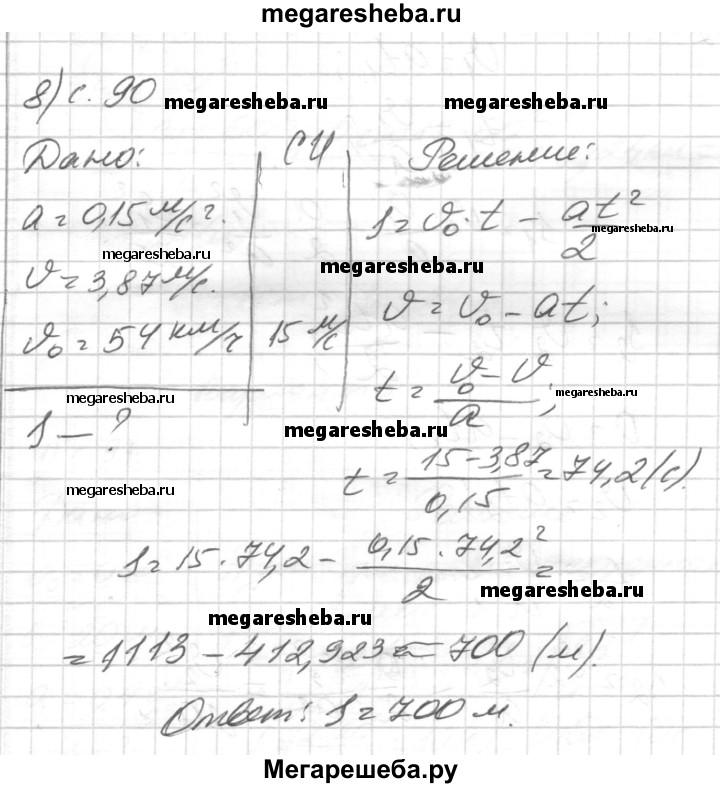 megaresheba.ru
8) с. 90
megaresheba.ru megaresheba.ru
Дано: СИ Решение:
a = 0,15 м/с². s = v₀·t - at²/2
megaresheba.ru megaresheba.ru megaresheba.ru
v = 3,87 м/с. v = v₀ - at;
v₀ = 54 км/ч 15 м/с
t = (v₀ - v)/a;
megaresheba.ru megaresheba.ru
s — ? megaresheba.ru
t = (15 - 3,87)/0,15 = 74,2 (с).
megaresheba.ru
s = 15 · 74,2 - (0,15 · 74,2²)/2 =
megaresheba.ru
megaresheba.ru
= 1113 - 412,923 = 700 (м).
Ответ: s = 700 м.
Мегарешеба.ру